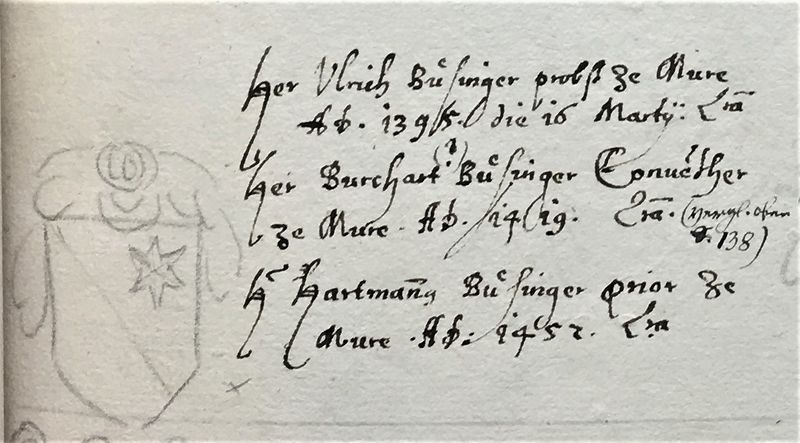 Her Vlrich Bůsinger probst ze Mure
Ao. 1395. die 16 Martij: Lr̃a
Her Burchart(?) Bůsinger Conue̊ther
ze Mure. Ao. 1419. Lr̃a. (vergl. oben
S. 138)
Hr̃ Hartmann Bůsinger prior ze
Mure. Ao: 1452. Lr̃a